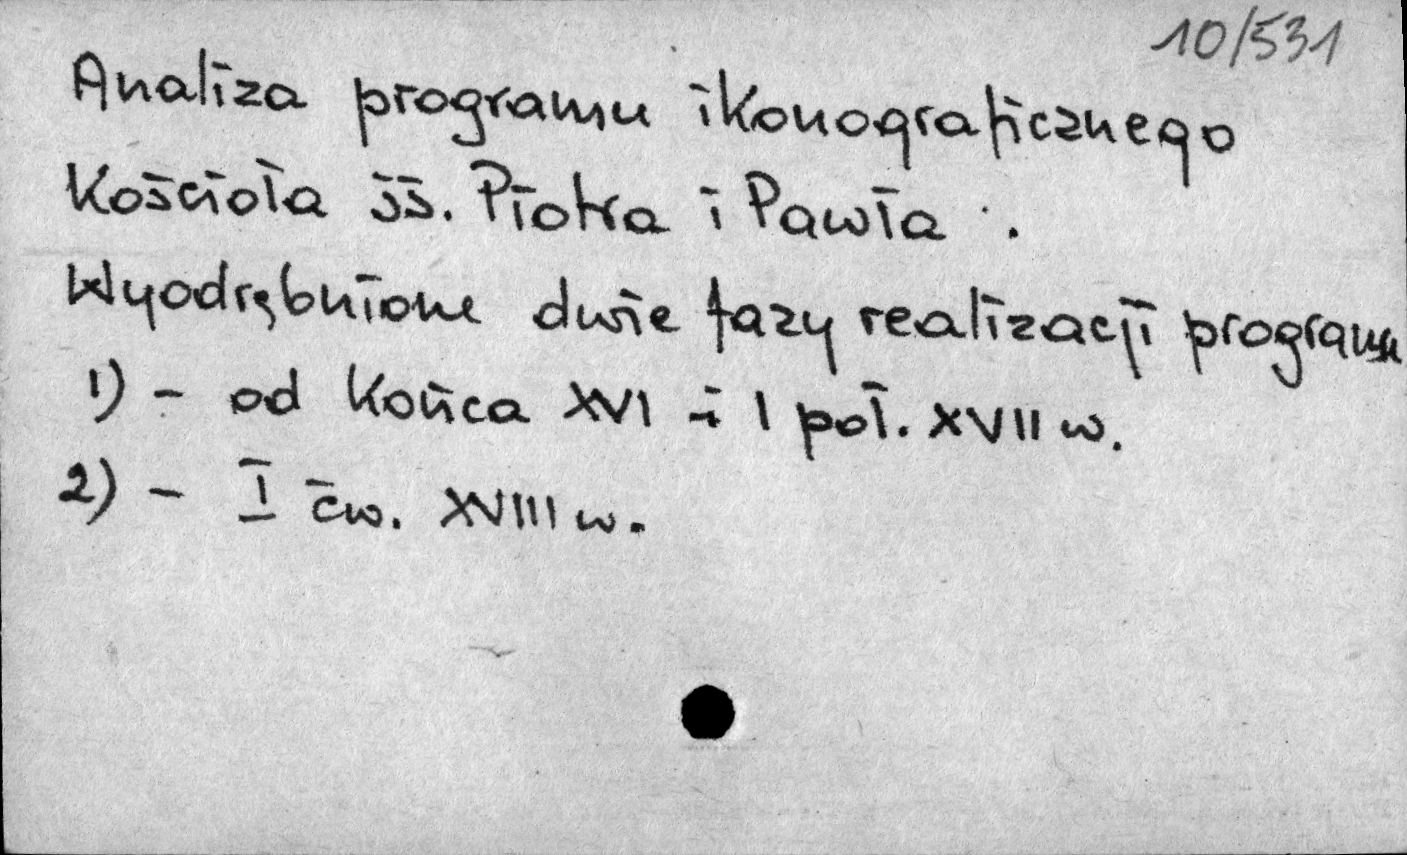 10/531
Analiza programu ikonograficznego
Kościoła śś. Piotra i Pawła .
Wyodrębnione dwie fazy realizacji programu
1) - od końca XVI i I poł. XVII w.
2) - I ćw. XVIII w.